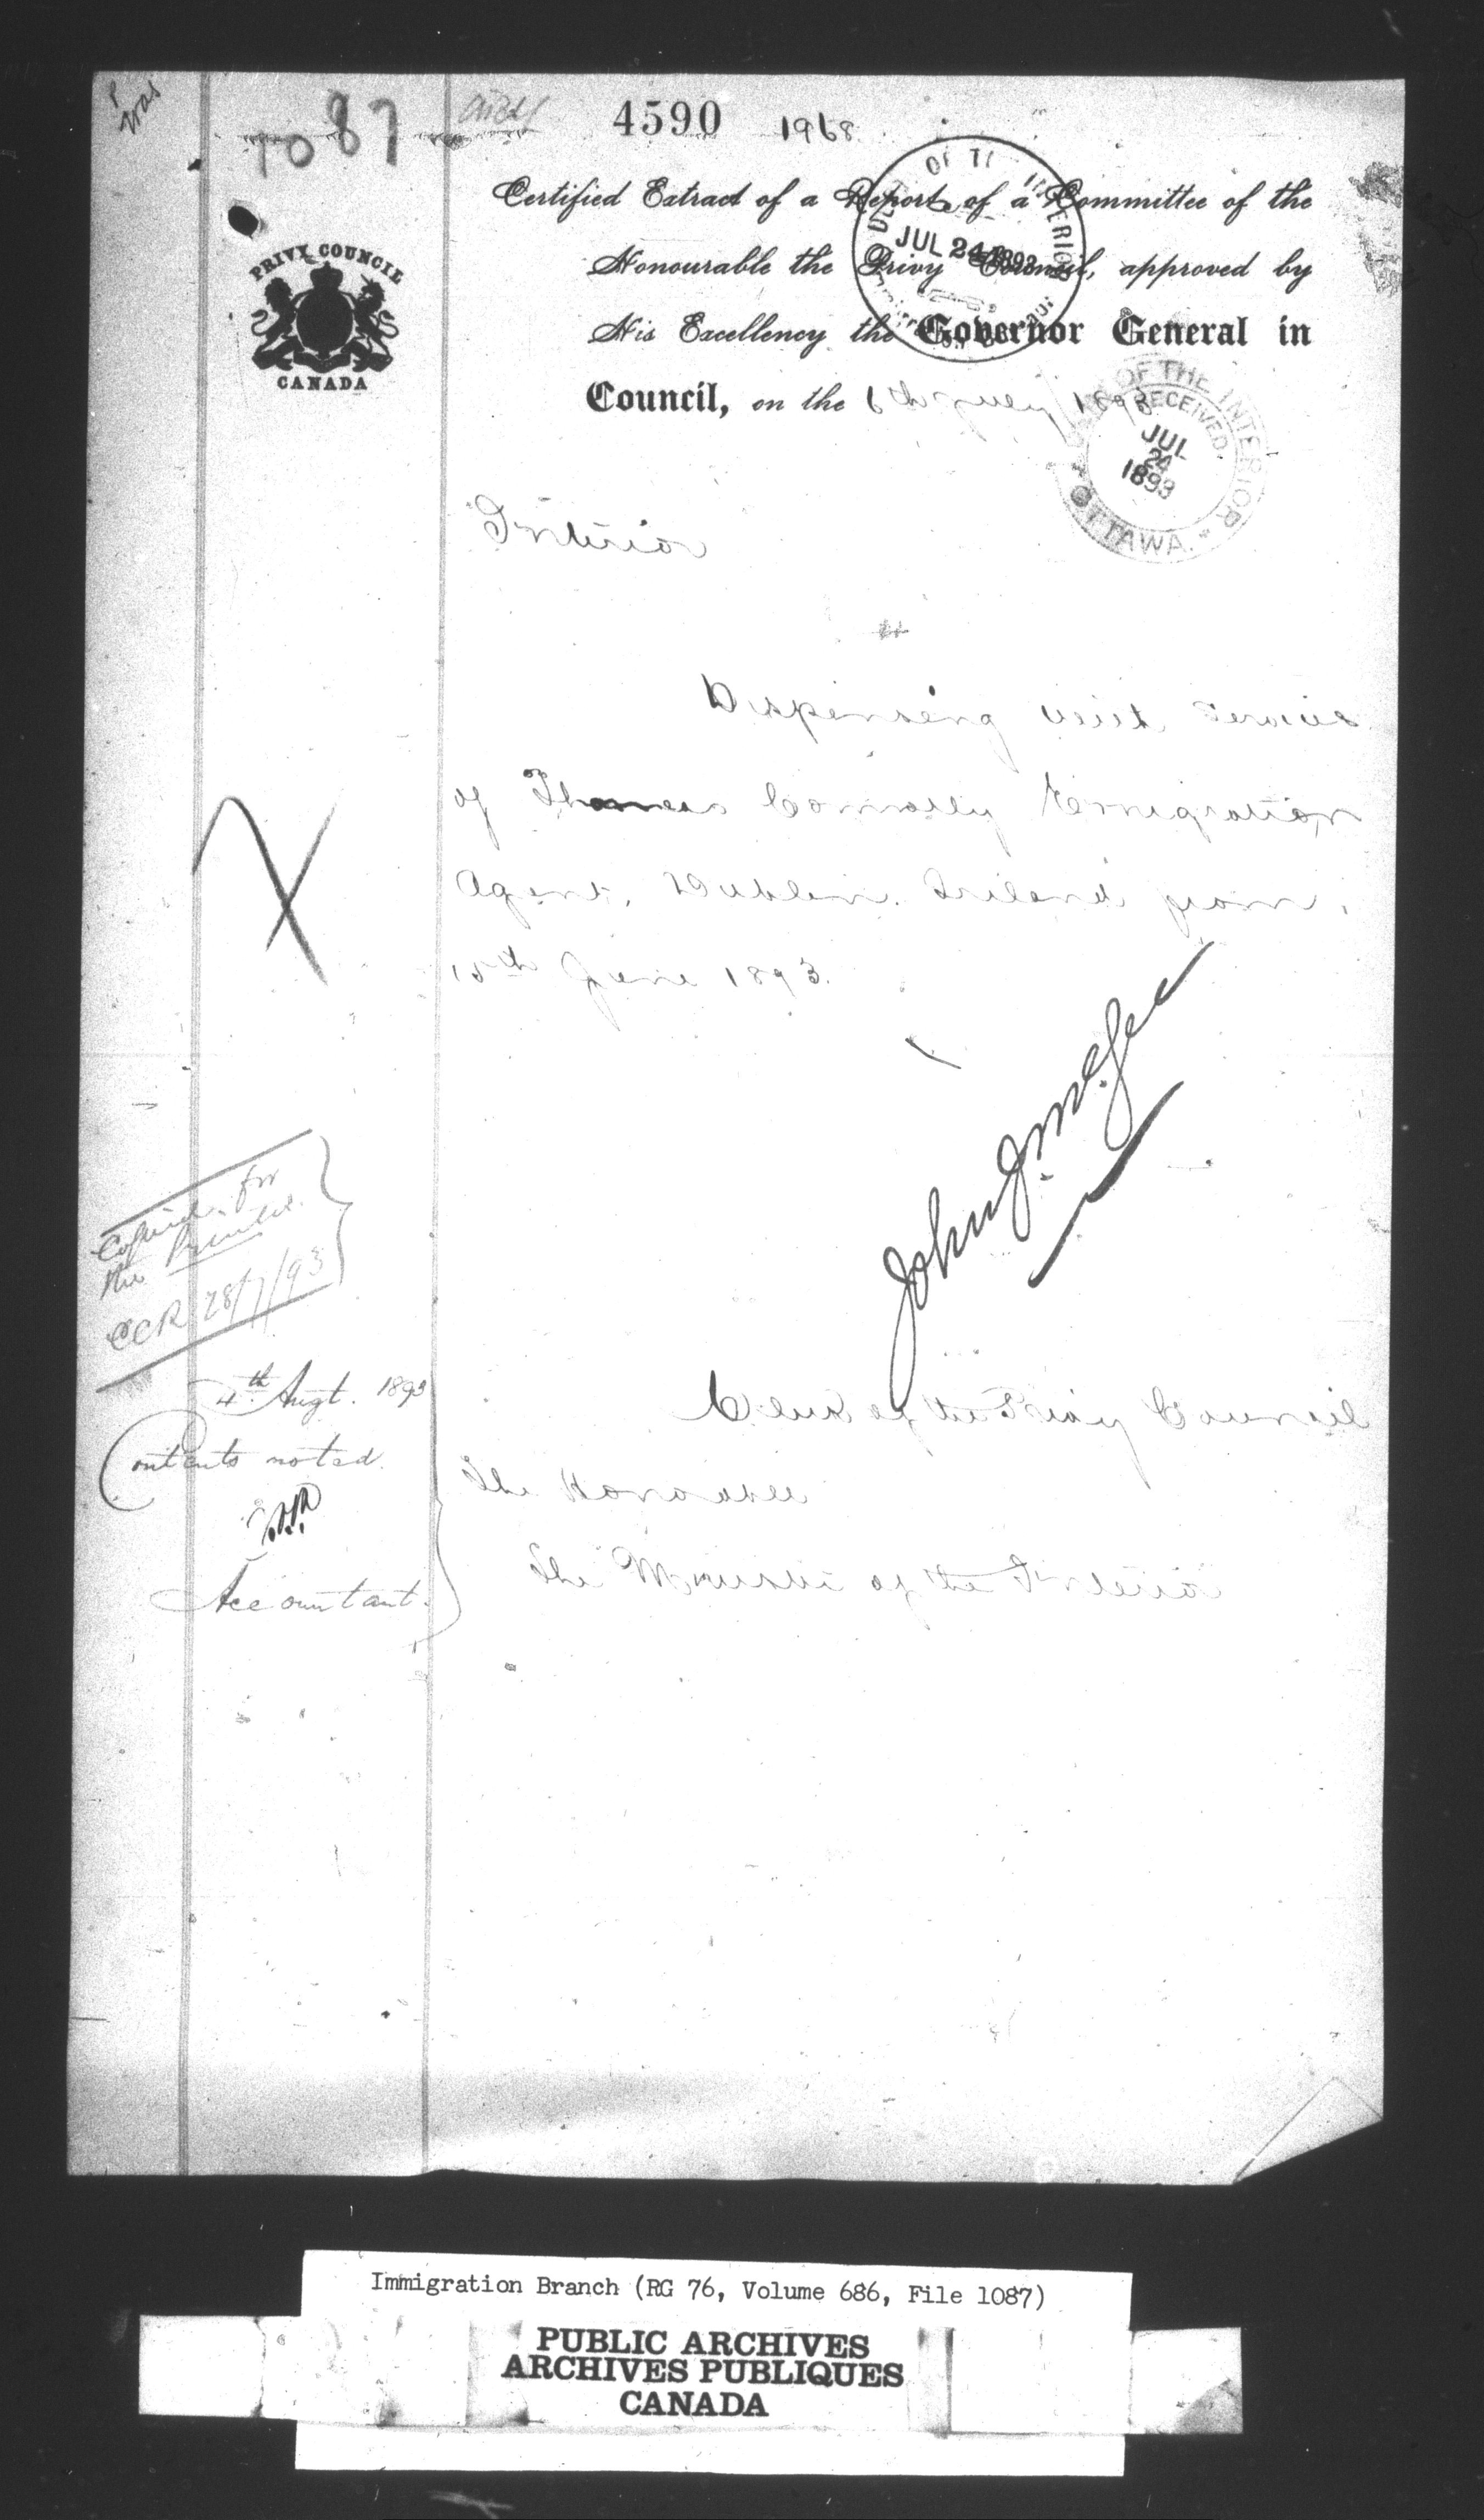 1087
4590 1968
PRIVY COUNCIL
CANADA
Certified Extract of a Report of a Committee of the
Honourable the Privy Council, approved by
His Excellency the Governor General in
Council, on the 6th July 1893
JUL 24 1893
OF THE INTERIOR
RECEIVED.
JUL
24
1893
OTTAWA.
Interior
Dispensing with services
of Thomas Connolly Emigration
Agent, Dublin. Ireland from
15th June 1893.
John J. McGee
Clerk of the Privy Council
The Honourable
The Minister of the Interior
Copied for
the Minister.
CCR 28/7/93
4th Augt. 1893
Contents noted.
Accountant.
Immigration Branch (RG 76, Volume 686, File 1087)
PUBLIC ARCHIVES
ARCHIVES PUBLIQUES
CANADA